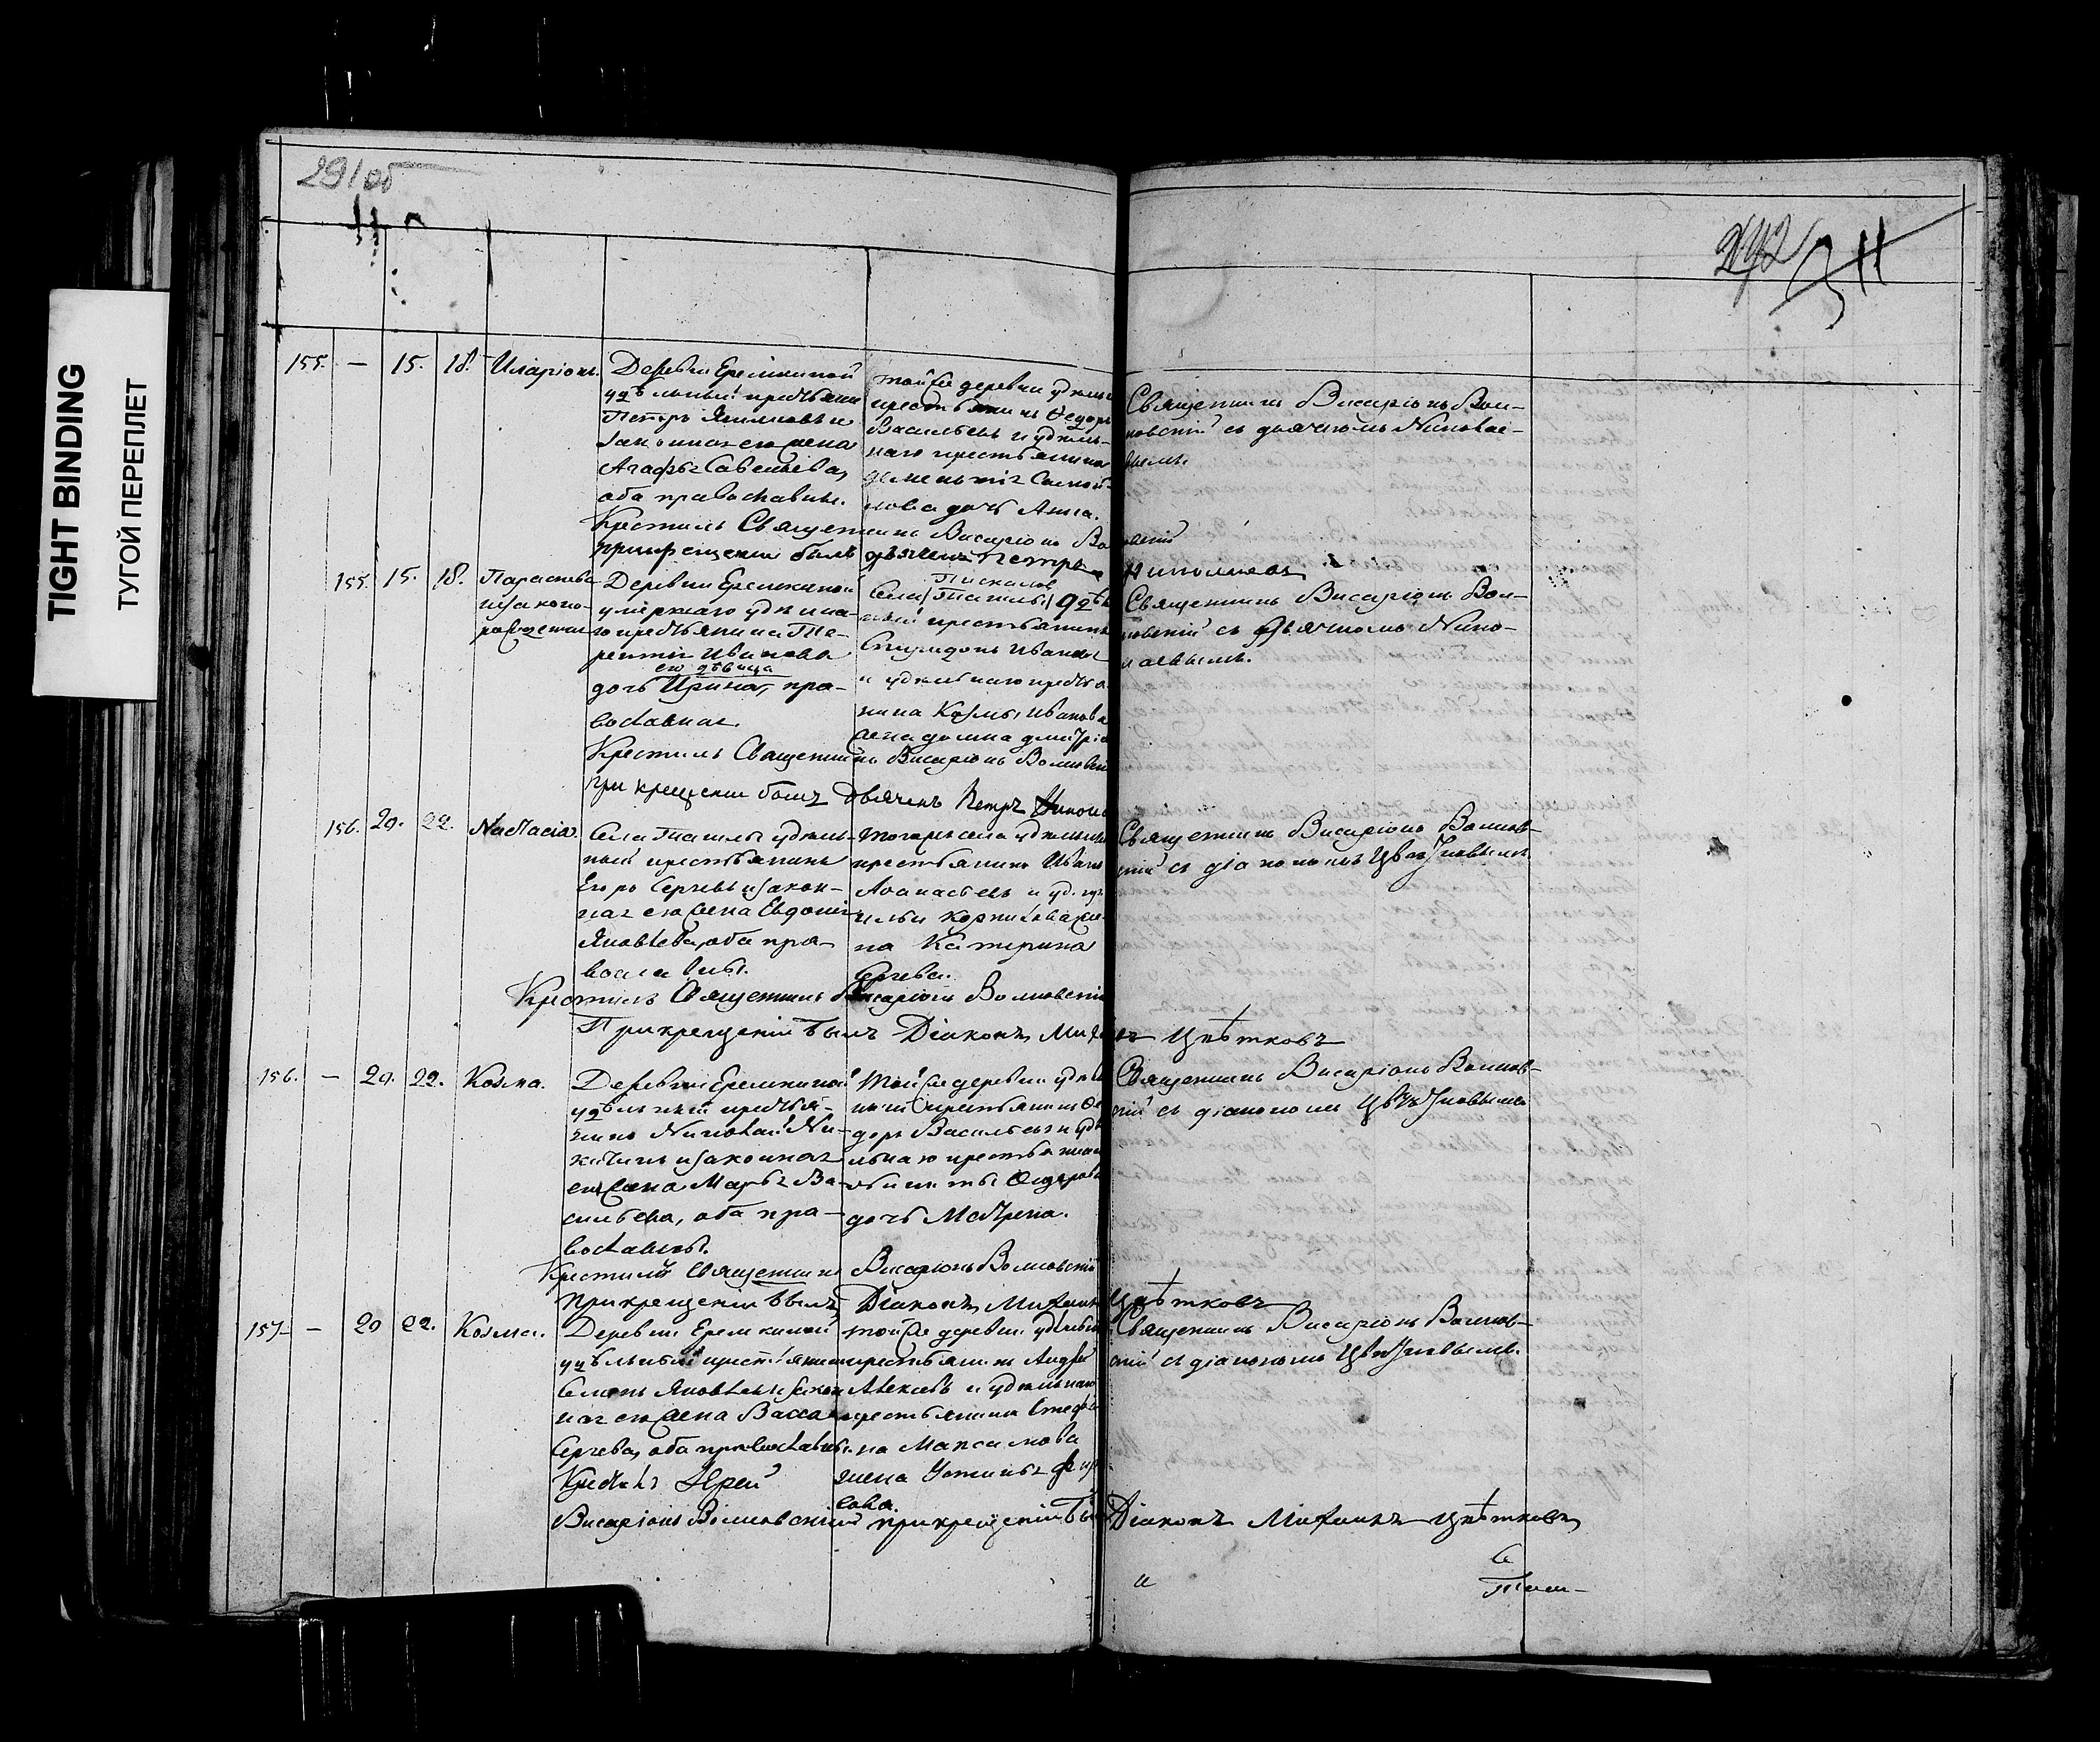 TIGHT BINDING
ТУГОЙ ПЕРЕПЛЕТ
291 об
242
155. — 15. 18. Иларіонъ.
Деревни Еремкиной
удѣльный крестьянинъ
Петръ Якимовъ и
законная его жена
Агафья Савельева,
оба православны.
той же деревни удѣльн
крестьянинъ Ѳедоръ
Васильевъ и удѣль-
наго крестьянина
дочь Анна.
Священникъ Висаріонъ Вол-
ковскій съ дьячкомъ Николае-
вымъ.
Крестилъ Священникъ Висаріонъ Во
при крещеніи былъ дьячекъ Петръ Николаевъ
155. 15. 18. Параскева
незаконо-
рожденная
Деревни Еремкиной
умершаго удѣльна-
го крестьянина Те-
рентія Иванова
его дѣвица
дочь Ирина, пра-
вославная.
Села Ташлы удѣль
ный крестьянинъ
Спиридонъ Ивановъ
и удѣльнаго крестья-
нина Козмы Иванова
жена Домна Дмитріе
Священникъ Висаріонъ Вол-
ковскій съ Дьячкомъ Нико-
лаевымъ.
Крестилъ Священникъ Висаріонъ Волковскій
при крещеніи былъ Дьячекъ Петръ Никола
156. 20. 22. Настасія
Села Ташлы удѣль-
ный крестьянинъ
Егоръ Сергѣевъ и закон-
ная его жена Евдокія
Яковлева, оба пра-
вославны.
Тогоже села удѣльный
крестьянинъ Иванъ
Аѳанасьевъ и уд. кр.
Ильи Корнилова же-
на Катерина
Сергѣева.
Священникъ Висаріонъ Волков-
скій съ діакономъ Цвѣтковымъ
Крестилъ Священникъ Висаріонъ Волковскій
При крещеніи былъ Діаконъ Михаилъ Цвѣтковъ
156. — 20. 22. Козма.
Деревни Еремкиной
удѣльный крестья-
нинъ Николай Ни-
китинъ и законная
его жена Марья Ва-
сильева, оба пра-
вославны.
Той же деревни удѣль
ный крестьянинъ Ѳе
доръ Васильевъ и удѣ
льнаго крестьянина
Ѳедорова
дочь Матрена.
Священникъ Висаріонъ Волков-
скій съ діакономъ Цвѣтковымъ
Крестилъ Священникъ Висаріонъ Волковскій
При крещеніи былъ Діаконъ Михаилъ Цвѣтковъ
157. — 20 22. Козма.
Деревни Еремкиной
удѣльный крестьянинъ
Семенъ Яковлевъ и закон
ная его жена Васса
Сергѣева, оба православны.
той же деревни удѣльный
крестьянинъ Андрей
Алексѣевъ и удѣльнаго
крестьянина Стефа
на Максимова
жена Устинья
сова.
Священникъ Висаріонъ Волков-
скій съ діакономъ Цвѣтковымъ.
Крестилъ Іерей
Висаріонъ Волковскій при крещеніи былъ Діаконъ Михаилъ Цвѣтковъ